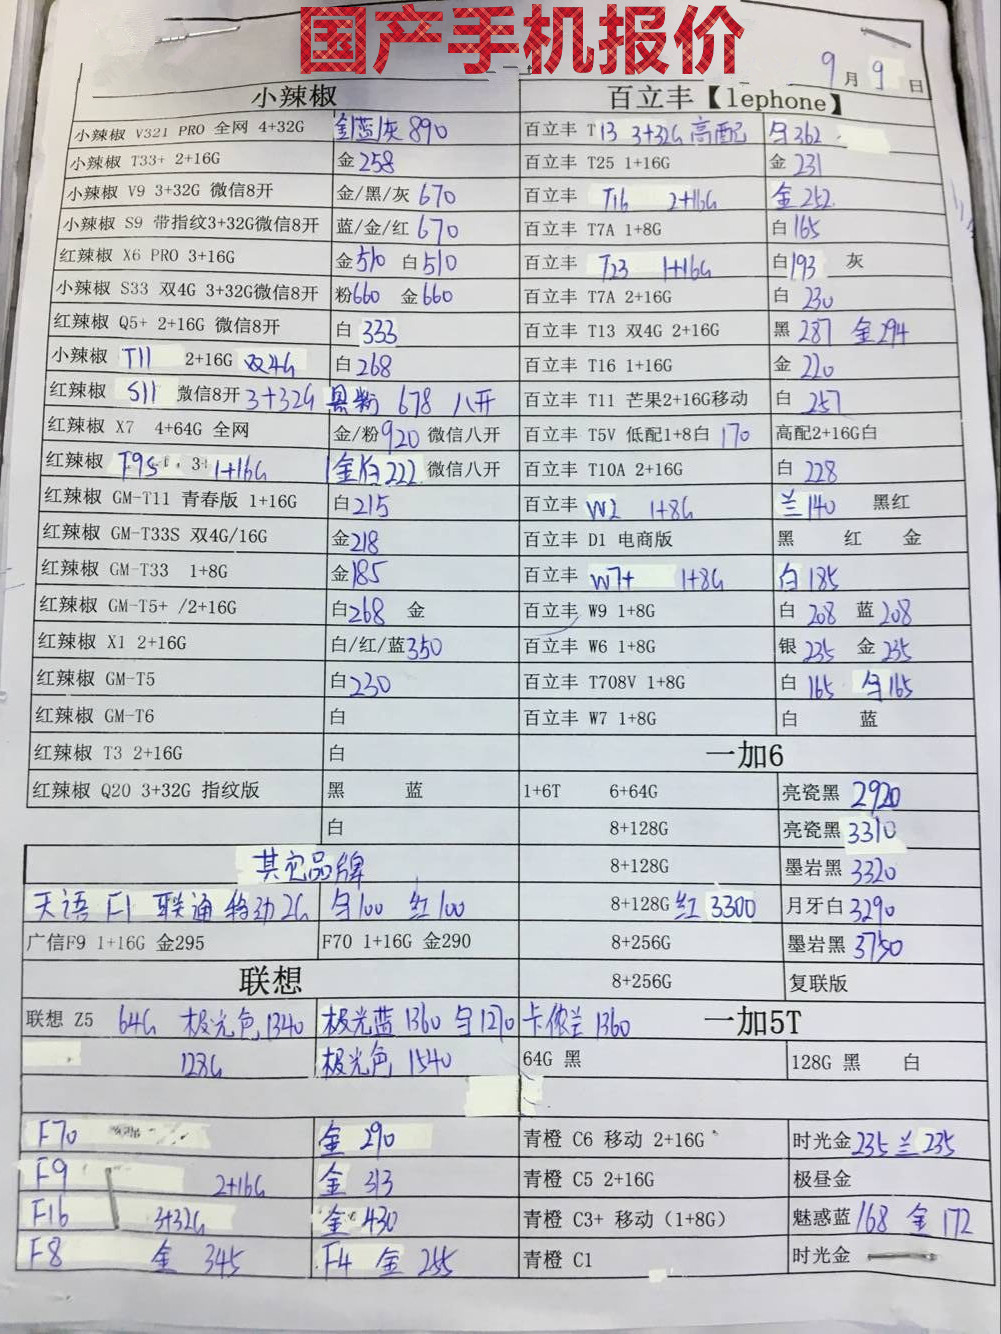 国产手机报价
9月9日
小辣椒 百立丰【lephone】
小辣椒 V321 PRO 全网 4+32G 金/蓝/灰 890 百立丰 T13 3+32G 高配 362
小辣椒 T33+ 2+16G 金 258 百立丰 T25 1+16G 金 231
小辣椒 V9 3+32G 微信8开 金/黑/灰 670 百立丰 T16 2+16G 金 252
小辣椒 S9 带指纹3+32G微信8开 蓝/金/红 670 百立丰 T7A 1+8G 白 165
红辣椒 X6 PRO 3+16G 金510 白510 百立丰 T23 1+16G 白193 灰
小辣椒 S33 双4G 3+32G微信8开 粉660 金660 百立丰 T7A 2+16G 白 230
红辣椒 Q5+ 2+16G 微信8开 白 333 百立丰 T13 双4G 2+16G 黑 287 金294
小辣椒 T11 2+16G 双4G 白268 百立丰 T16 1+16G 金 220
红辣椒 S11 微信8开 3+32G 黑粉 678 八开 百立丰 T11 芒果2+16G移动 白 257
红辣椒 X7 4+64G 全网 金/粉920 微信八开 百立丰 T5V 低配1+8白 170 高配2+16G白
红辣椒 F9S 1+16G 金白222 微信八开 百立丰 T10A 2+16G 白 228
红辣椒 GM-T11 青春版 1+16G 白215 百立丰 W2 1+8G 兰140 黑红
红辣椒 GM-T33S 双4G/16G 金218 百立丰 D1 电商版 黑 红 金
红辣椒 GM-T33 1+8G 金185 百立丰 W7+ 1+8G 白 185
红辣椒 GM-T5+ /2+16G 白268 金 百立丰 W9 1+8G 白 208 蓝 208
红辣椒 X1 2+16G 白/红/蓝350 百立丰 W6 1+8G 银 235 金 235
红辣椒 GM-T5 白230 百立丰 T708V 1+8G 白 165 165
红辣椒 GM-T6 白 百立丰 W7 1+8G 白 蓝
红辣椒 T3 2+16G 白 一加6
红辣椒 Q20 3+32G 指纹版 黑 蓝 1+6T 6+64G 亮瓷黑 2920
白 8+128G 亮瓷黑 3310
其它品牌 8+128G 墨岩黑 3320
天语 F1 联通移动2G 100 红100 8+128G 红 3300 月牙白 3290
广信F9 1+16G 金295 F70 1+16G 金290 8+256G 墨岩黑 3750
联想 8+256G 复联版
联想 Z5 64G 极光色1340 极光蓝 1360 1270 卡侬兰 1360 一加5T
128G 极光色 1540 64G 黑 128G 黑 白
F70 金 290 青橙 C6 移动 2+16G 时光金235 兰 235
F9 2+16G 金 313 青橙 C5 2+16G 极昼金
F16 3+32G 金 430 青橙 C3+ 移动（1+8G） 魅惑蓝168 金 172
F8 金 345 F4 金 255 青橙 C1 时光金